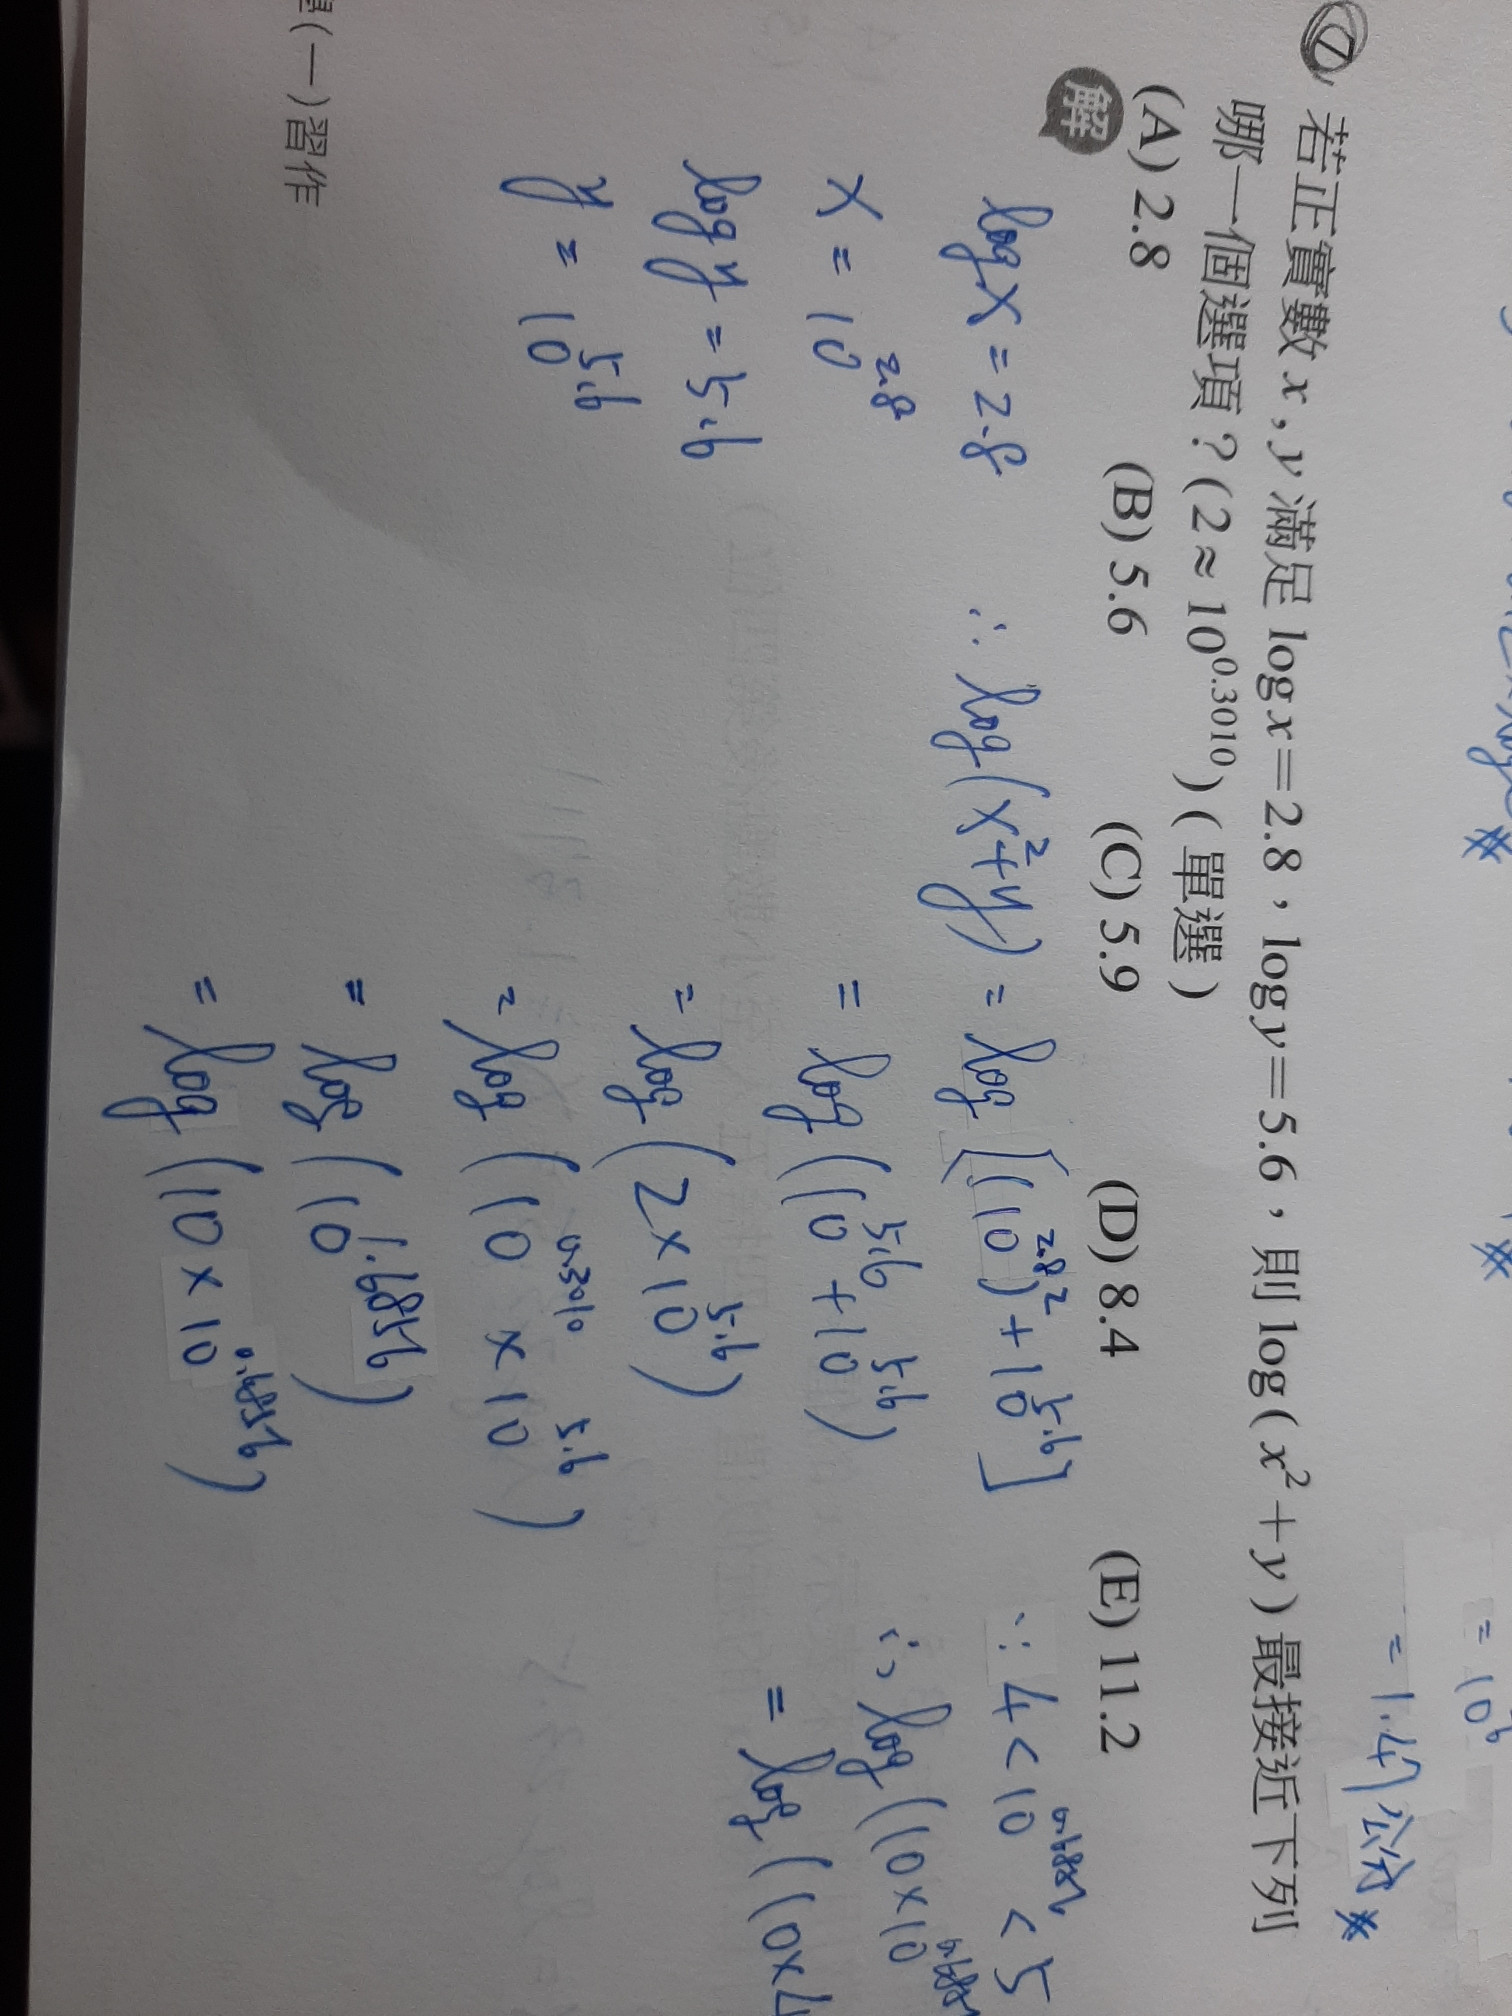 = 10⁶
= 1.47公分 *
7 若正實數 x,y 滿足 log x=2.8,log y=5.6,則 log(x²+y)最接近下列
哪一個選項?(2≈10^0.3010)(單選)
(A) 2.8 (B) 5.6 (C) 5.9 (D) 8.4 (E) 11.2
解
log x = 2.8
x = 10^2.8
log y = 5.6
y = 10^5.6
∴ log(x²+y) = log[(10^2.8)²+10^5.6]
= log(10^5.6+10^5.6)
= log(2×10^5.6)
= log(10^0.3010 × 10^5.6)
= log(10^1.6856)
= log(10×10^0.6856)
∵ 4 < 10^0.6856 < 5
∴ log(10×10^0.685
= log(10×4
(一)習作